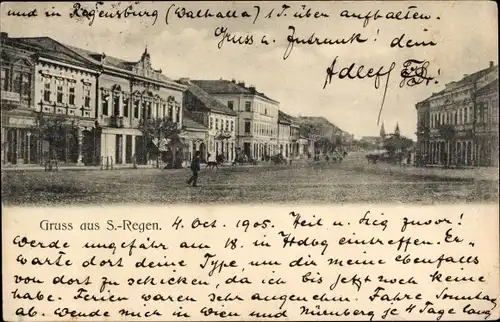 und in Regensburg (Walhalla) 1 T. über aufhalten.
Gruss u. Zutrunk! dein
Adolf
Gruss aus S.-Regen. 4. Oct. 1905. Heil u. Sieg zuvor!
Werde ungefähr am 18. in Hdbg eintreffen. Er-
warte dort deine Type, um dir meine ebenfalls
von dort zu schicken, da ich bis jetzt noch keine
habe. Ferien waren sehr angenehm. Fahre Sonntag
ab. Werde mich in Wien und Nürnberg je 4 Tage lang